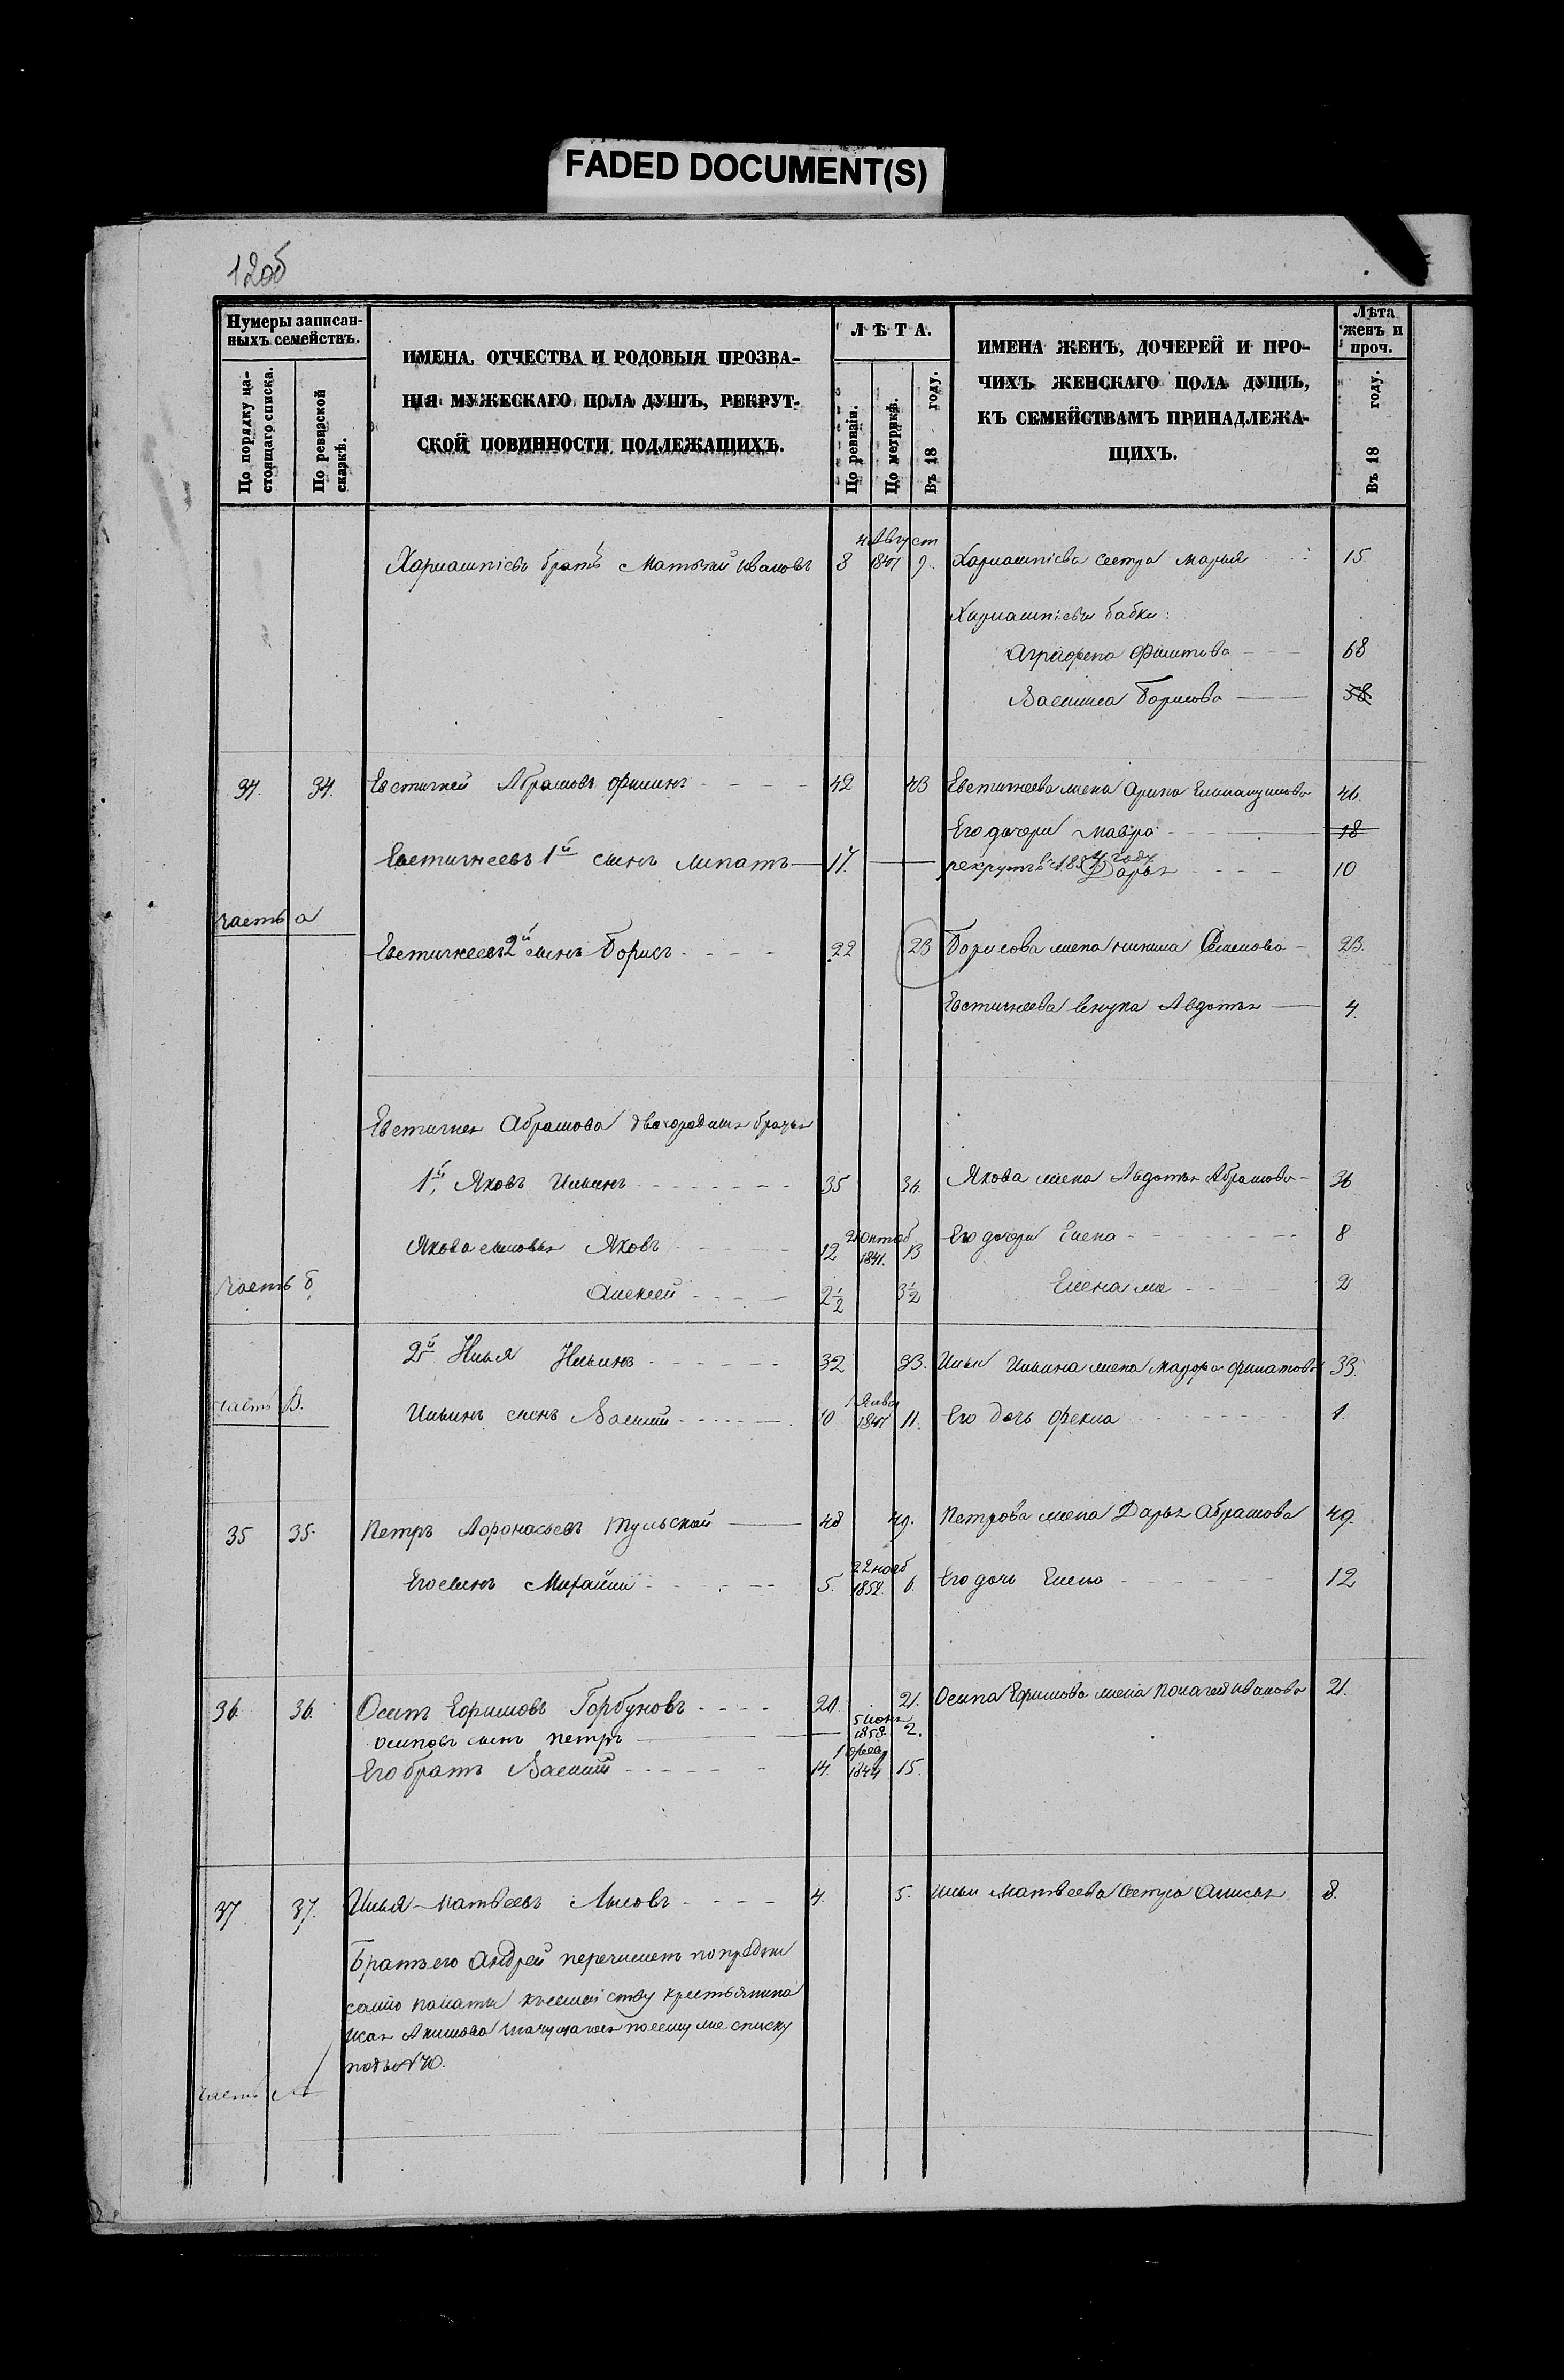 FADED DOCUMENT(S)
12об
Нумеры записан-
ныхъ семействъ.
По порядку на-
стоящаго списка.
По ревизской
сказкѣ.
ИМЕНА, ОТЧЕСТВА И РОДОВЫЯ ПРОЗВА-
НІЯ МУЖЕСКАГО ПОЛА ДУШЪ, РЕКРУТ-
СКОЙ ПОВИННОСТИ ПОДЛЕЖАЩИХЪ.
ЛѢТА.
По ревизіи.
По метрикѣ.
Въ 18 году.
ИМЕНА ЖЕНЪ, ДОЧЕРЕЙ И ПРО-
ЧИХЪ ЖЕНСКАГО ПОЛА ДУШЪ,
КЪ СЕМЕЙСТВАМЪ ПРИНАДЛЕЖА-
ЩИХЪ.
Лѣта
женъ и
проч.
Въ 18 году.
братъ Ивановъ 8 Август 9. сестра Марья 15.
бабки:
Аграфена 68
Василиса Борисова 58
34. 34. Евстигней Абрамовъ 42 43 Евстигнеева жена Арина 46.
Его дочери Мавра 18
Евстигнеевъ 1й сынъ Липатъ 17. рекрутъ году Дарья 10
часть а
Евстигнеевъ 2й сынъ Борисъ 22 23 Борисова жена Семенова 23.
Евстигнеева внука Авдотья 4.
Евстигнея Абрамова двоюродныя братья
1й, Яковъ Ильинъ 35 36. Якова жена Авдотья Абрамова 36
Якова сыновья Яковъ 12 Октяб 1841. 13 Его дочери Елена 8
часть б Алексей 2½ 3½ Елена же 2
2й Илья Ильинъ 32 33. Ильи Ильина жена Филатова 33.
часть В.
Ильинъ сынъ Василий 10 1 Янва 1847 11. Его дочь Фекла 1.
35 35. Петръ Афонасьевъ Тульской 48 49. Петрова жена Дарья Абрамова 49.
Его сынъ Михаила 5. 22 нояб 1852. 6. Его дочь Елена 12
36. 36. Осипъ Ефимовъ Горбуновъ 20. 21. Осипа Ефимова жена Ивановa 21.
Осиповъ сынъ Петръ 1858. 2.
Его братъ Василий 14. 1844 15.
37. 37. Илья Матвеевъ 4. 5. Ильи Матвеева сестра Анисья 8.
Братъ его Андрей перечисленъ по предпи
санію палаты къ семейству крестьянина
Акимова по сему же списку
подъ №40.
часть А